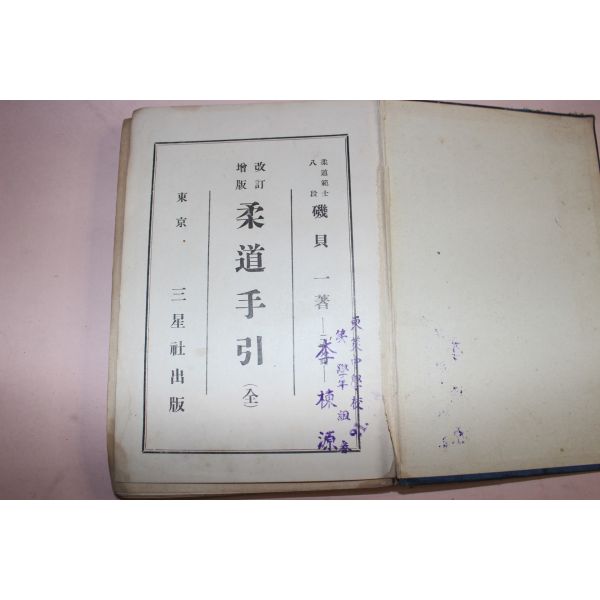 柔道範士
八段
磯貝一著
改訂
增版
柔道手引(全)
東京 三星社出版
東萊中學校
第 學年 組 番
李棟源